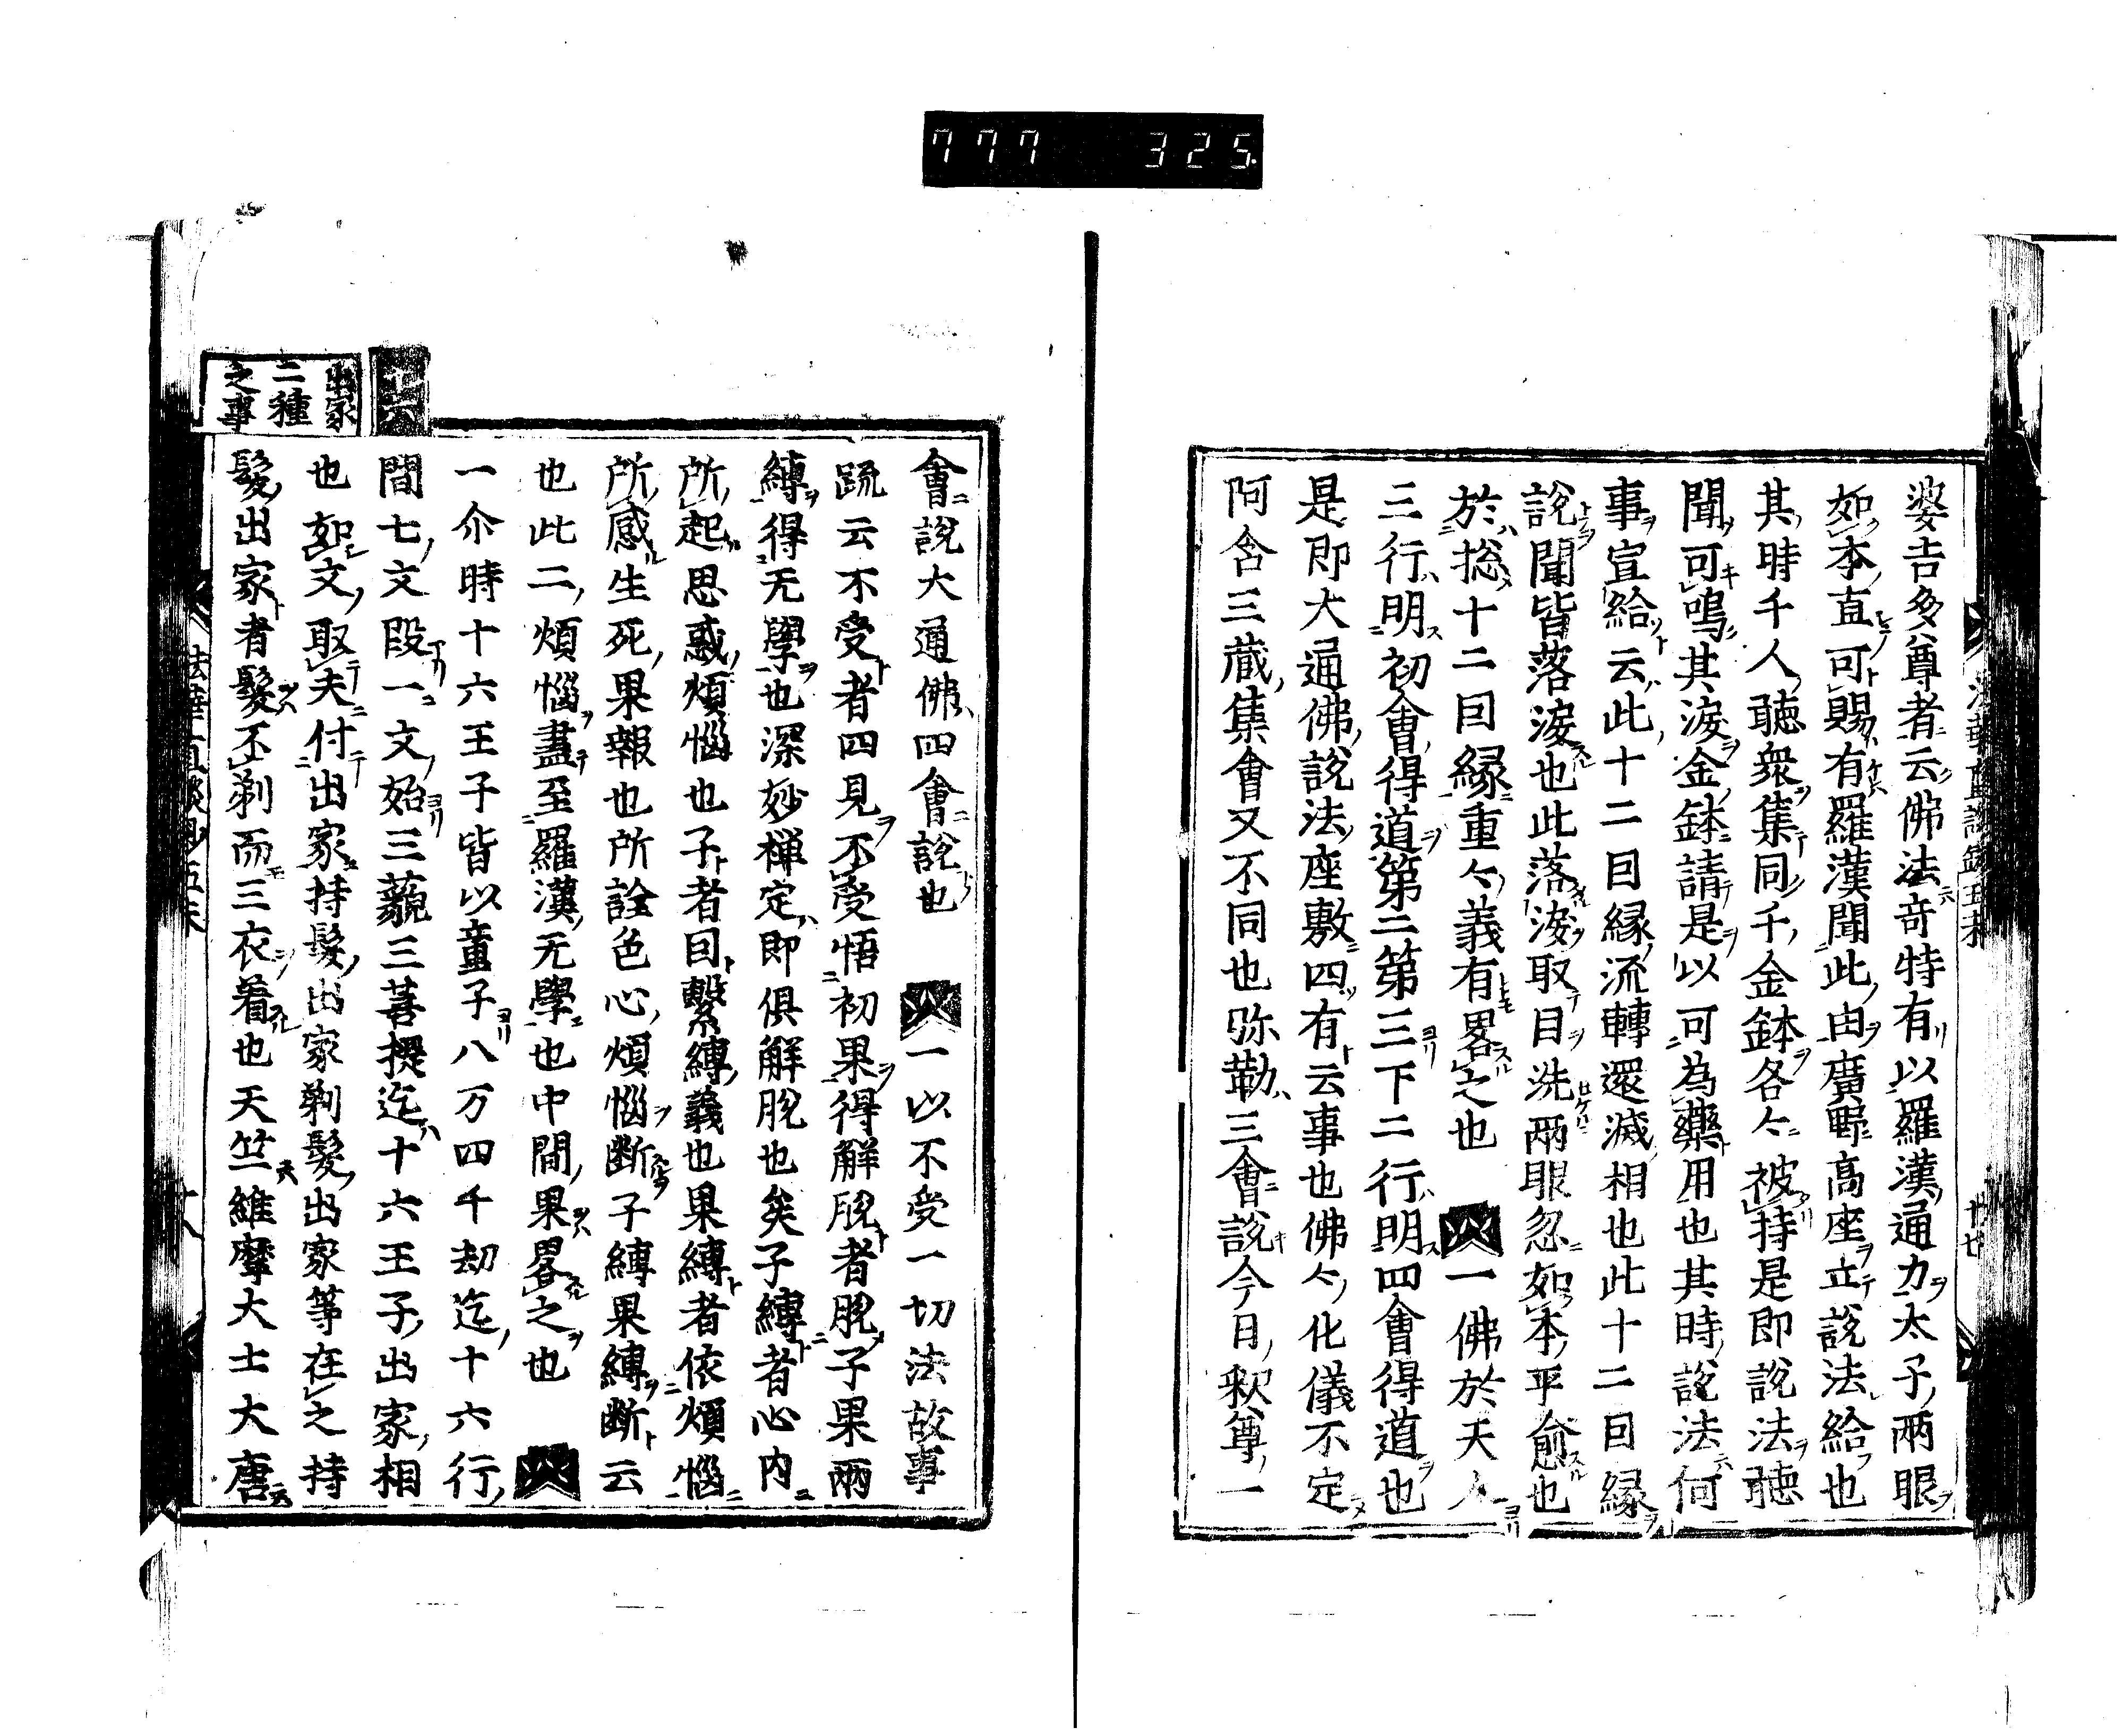 777 325
婆吉多尊者云佛法奇特有以羅漢通力太子兩眼
如本直可賜有羅漢聞此由廣野高座立說法給也
其時千人聽衆集同千金鉢各々被持是即說法聽
聞可鳴其淚金鉢請是以可為藥用也其時說法何
事宣給云此十二因緣流轉還滅相也此十二因緣
說聞皆落淚也此落淚取目洗兩眼忽如本平愈也
於捴十二因緣重々義有畧之也 一佛於天人
三行明初會得道第二第三下二行明四會得道也
是即大通佛說法座敷四有云事也佛々化儀不定
阿含三藏集會又不同也弥勒三會說今日釈尊一
會說大通佛四會說也 一以不受一切法故事
䟽云不受者四見不受悟初果得解脫者脫子果兩
縛得无學也深妙禅定即俱解脫也矣子縛者心内
所起思惑煩惱也子者因繫縛義也果縛者依煩惱
所感生死果報也所詮色心煩惱断子縛果縛断云
也此二煩惱盡至羅漢无學也中間果畧之也
一尒時十六王子皆以童子八万四千劫迄十六行
間七文段一文始三藐三菩提迄十六王子出家相
也如文取夫付出家持髮出家剃髮出家等在之持
髮出家者髮丕剃而三衣着也天竺維摩大士大唐
十六
出家
二種
之事